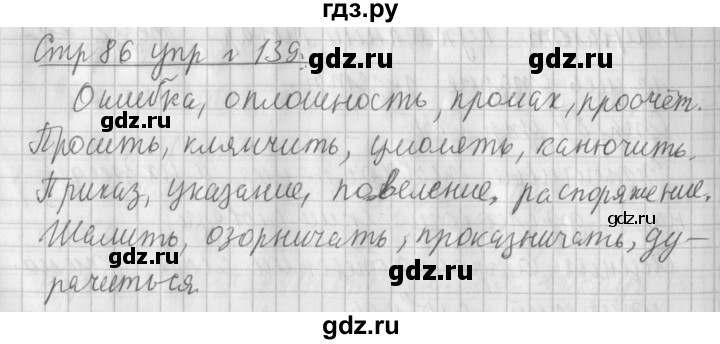 гдз.ру
Стр 86 упр г 139.
gdz.ru
Ошибка, оплошность, промах, просчёт.
gdz.ru
gdz.ru
Просить, клянчить, умолять, канючить.
Приказ, указание, повеление, распоряжение.
gdz.ru
Шалить, озорничать, проказничать, ду-
gdz.ru
gdz.ru
рачиться.
gdz.ru